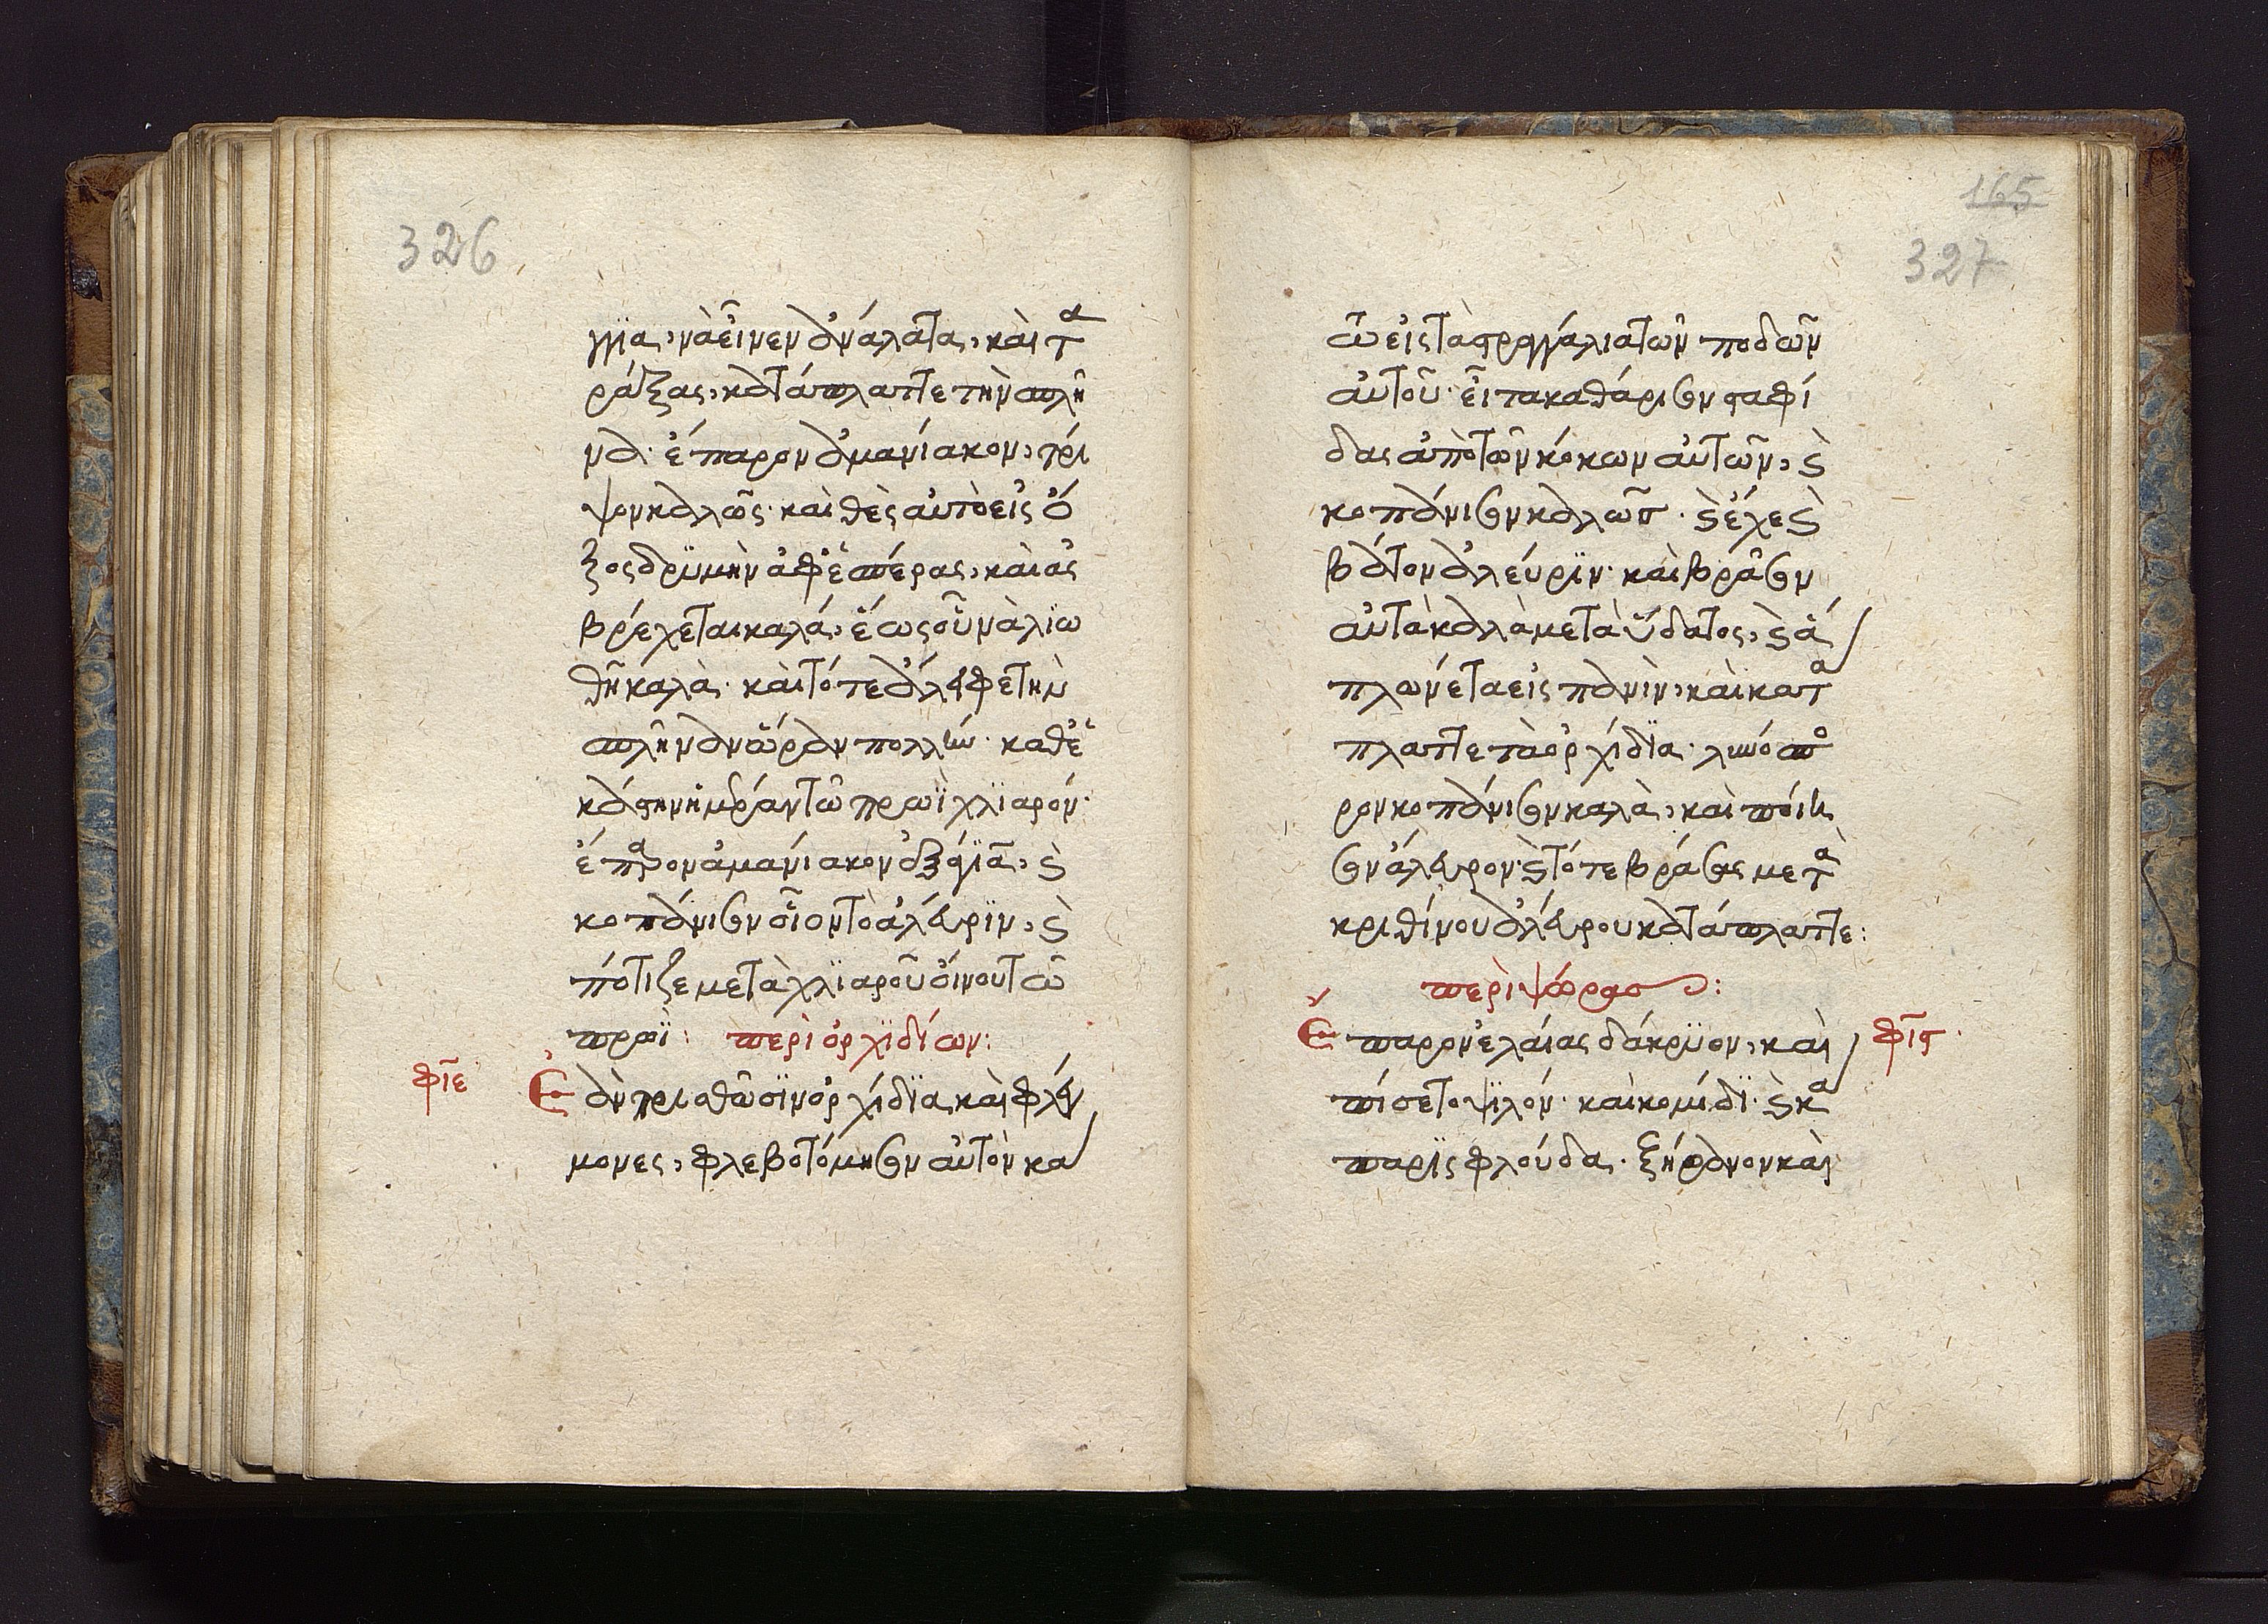 326
γγία, νὰ εἶνεν ἀνάλατα, καὶ τα
ράξας, κατάπλαττε τὴν σπλῆ
να· ἔπαρον ἀμανίακον, τρί
ψον καλῶς· καὶ θὲς αὐτὸ εἰς ὄ
ξος δρϊμὴν ἀφἑσπέρας, καὶ ἂς
βρέχεται καλά, ἕως οὗ νὰ λϊω
θῆ καλὰ· καὶ τότε ἄλειφε τὴν
σπλῆναν ὥραν πολλήν· καθἑ
κάστην ἡμέραν τῶ πρωῒ χλϊαρόν·
ἔπαρον ἀμανίακον ὀξιγγία, καὶ
κοπάνισον οἷον τὸ ἀλεύρϊν, καὶ
πότιζε μετὰ χλϊαροῦ οἴνου τῶ
πρωΐ: περὶ ὀρχϊδίων:
φιε
Ἐὰν πρισθῶσϊν ὀρχίδϊα, καὶ φλέγ
μονες, φλεβοτόμησον αὐτὸν κά
165
327
τω εἰς τὰ στραγγάλια τῶν ποδῶν
αὐτοῦ· εἶτα καθάρισον σταφί
δας ἀπὸ τῶν κόκων αὐτῶν, καὶ
κοπάνισον καλῶς· καὶ ἔχε καὶ
βάτον ἀλεύρϊν· καὶ βράσον
αὐτὰ καλὰ μετὰ ὕδατος, καὶ ἅ
πλωνέ τα εἰς πανὶν, καὶ κατα
πλαττε τὰ ὀρχίδϊα· λινόσπο
ρον κοπάνισον καλὰ, καὶ ποίη
σον ἄλευρον· καὶ τότε βράσας μετὰ
κριθίνου ἀλεύρου κατάπλαττε:
περὶ ψώρας:
Ἔπαρον ἐλαίας δάκρϊον, καὶ
φις
πίσε τοψϊλόν· καὶ κομίδϊ· καὶ κα
παρϊς φλούδα· ξήρανον καὶ